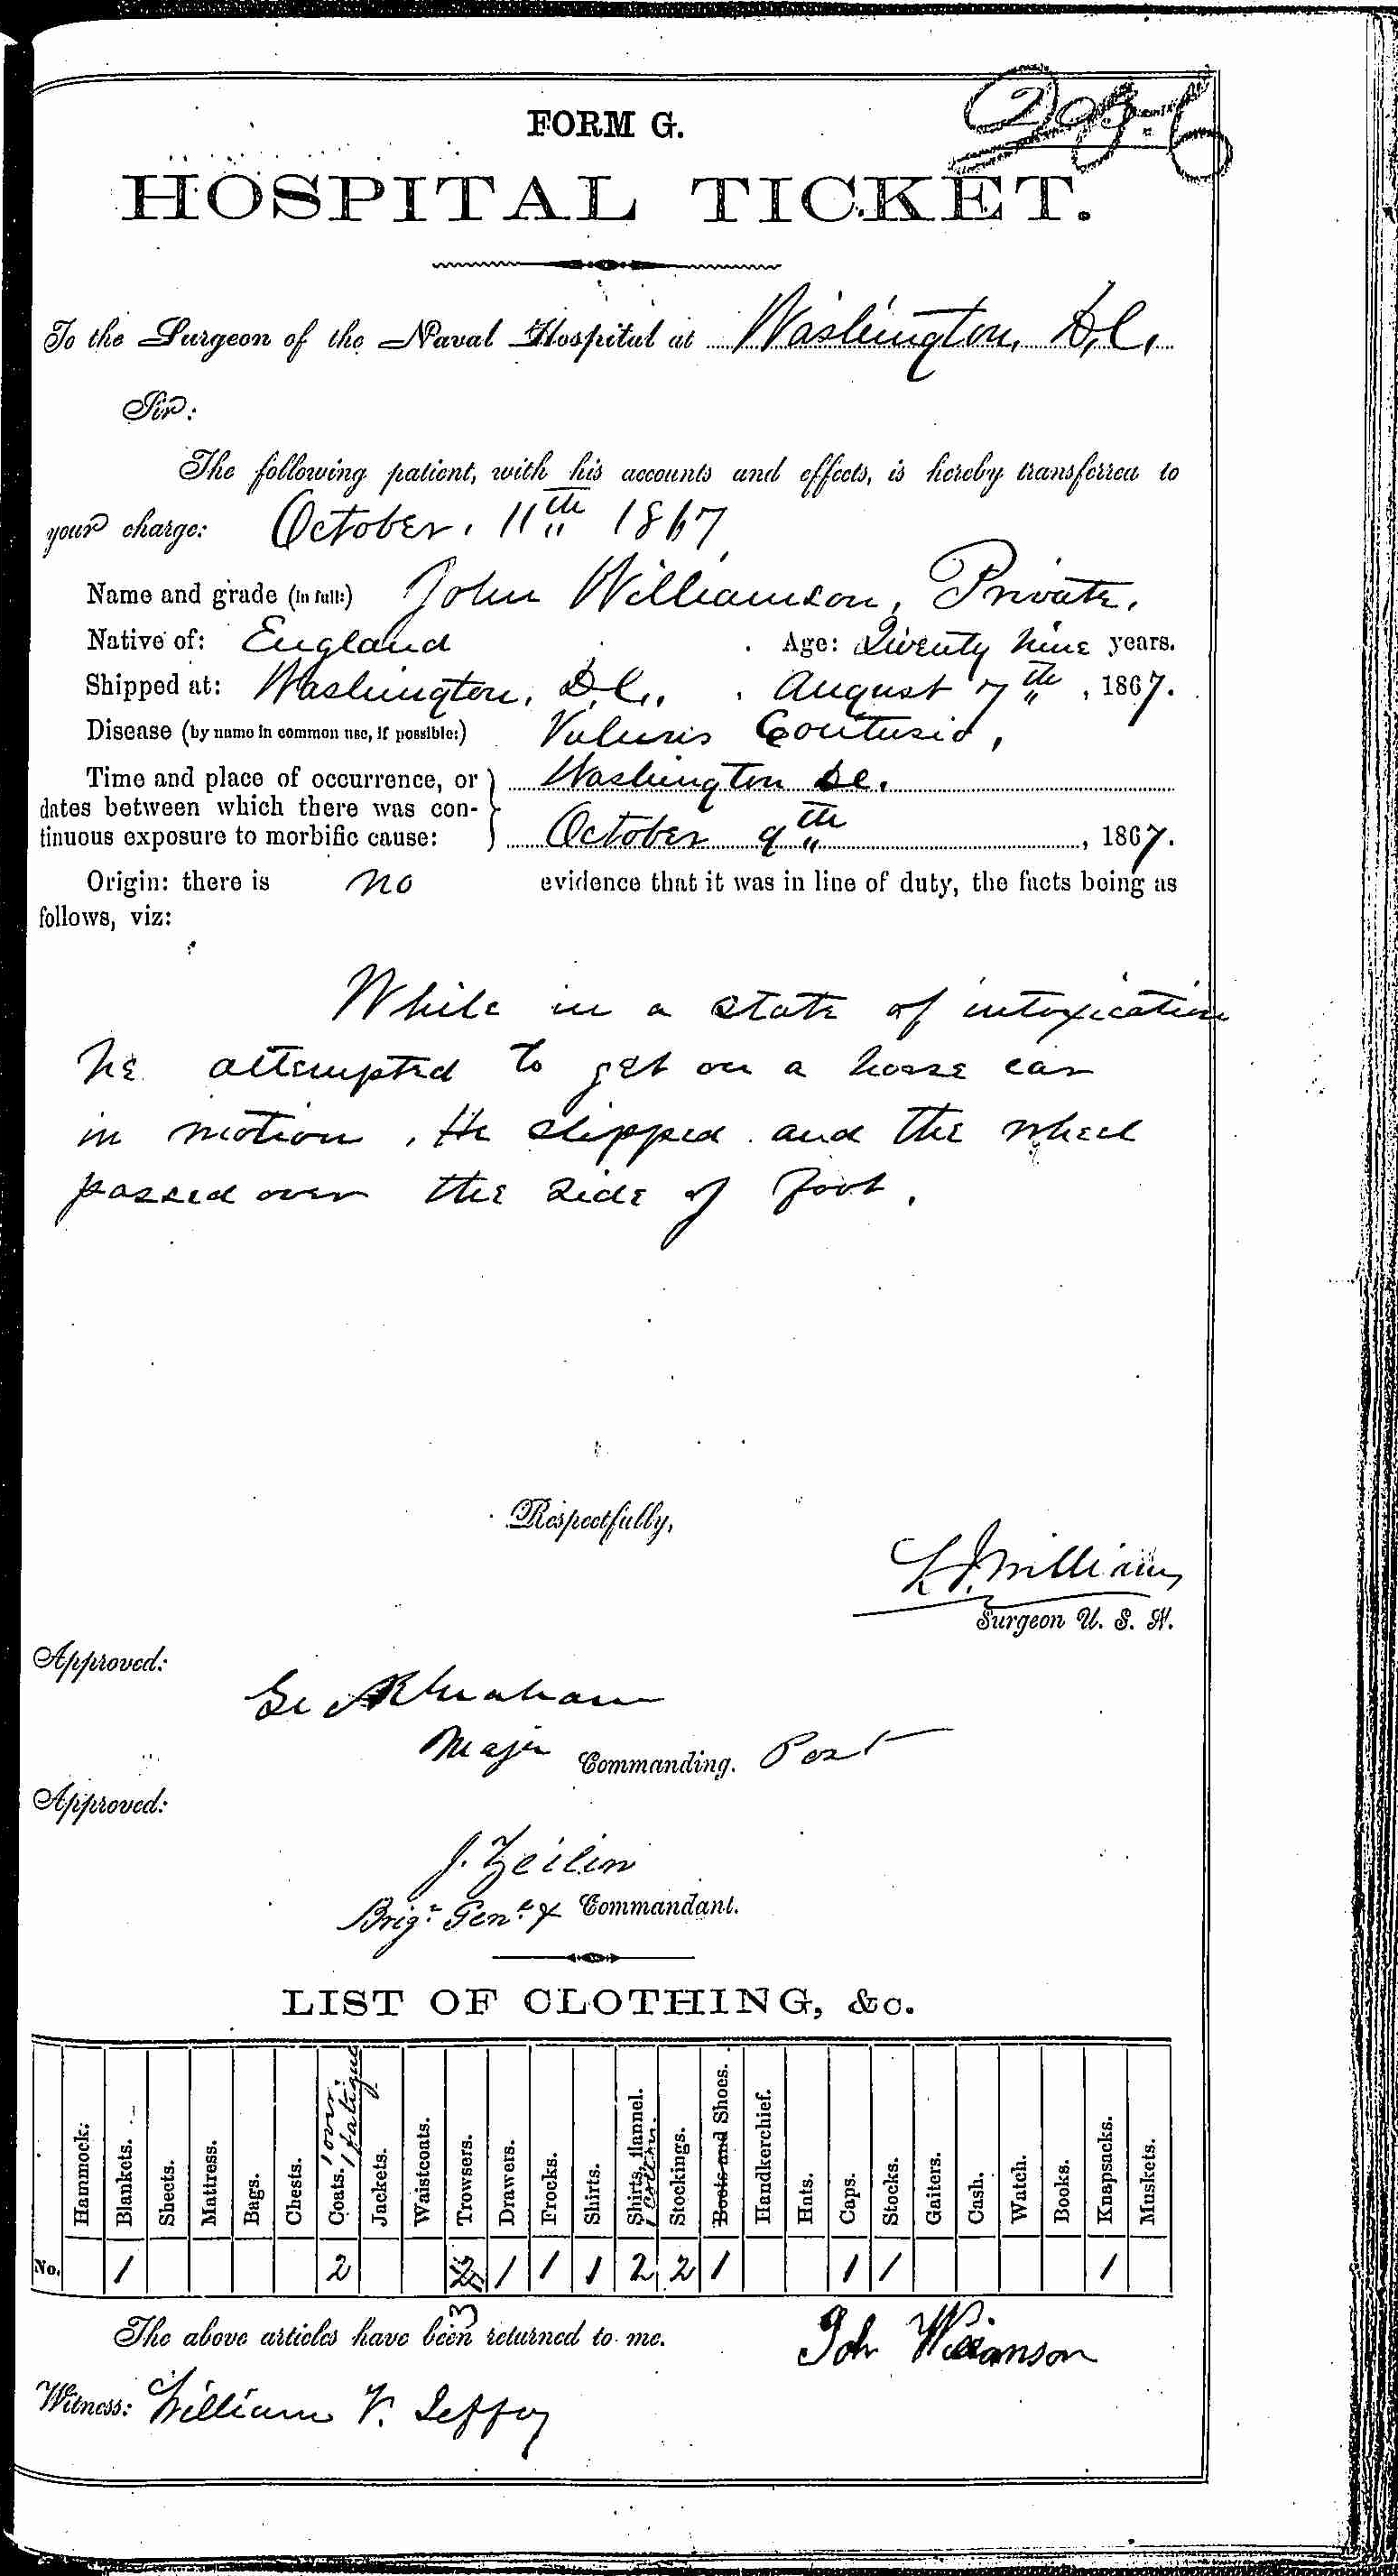 FORM G.
HOSPITAL TICKET.
To the Surgeon of the Naval Hospital at Washington, D.C,
Sir:
The following patient, with his accounts and effects, is hereby transferred to
your charge: October. 11th 1867
Name and grade (in full:) John Williamson, Private.
Native of: England Age: Twenty Nine years.
Shipped at: Washington, D.C., August 7th, 1867.
Disease (by name in common use, if possible:) Vulnris Contusio,
Time and place of occurrence, or Washington DC.
dates between which there was con-
tinuous exposure to morbific cause: October 9th, 1867.
Origin: there is no evidence that it was in line of duty, the facts being as
follows, viz:
While in a state of intoxication
he attempted to get on a horse car
in motion. He slipped and the wheel
passed over the side of foot.
Respectfully,
Williams
Surgeon U. S. N.
Approved:
Graham
Major Commanding. Post
Approved:
J. Zeilin
Brigr. Genl. & Commandant.
LIST OF CLOTHING, &c.
Hammock: Blankets. Sheets. Mattress. Bags. Chests. Coats. 1 over. 1 fatigue Jackets. Waistcoats. Trowsers. Drawers. Frocks. Shirts. Shirts, flannel. 1 Cotton. Stockings. Boots and Shoes. Handkerchief. Hats. Caps. Stocks. Gaiters. Cash. Watch. Books. Knapsacks. Muskets.
No. 1 2 2 1 1 1 2 2 1 1 1 1
3
The above articles have been returned to me. Joh Williamson
Witness: William V.